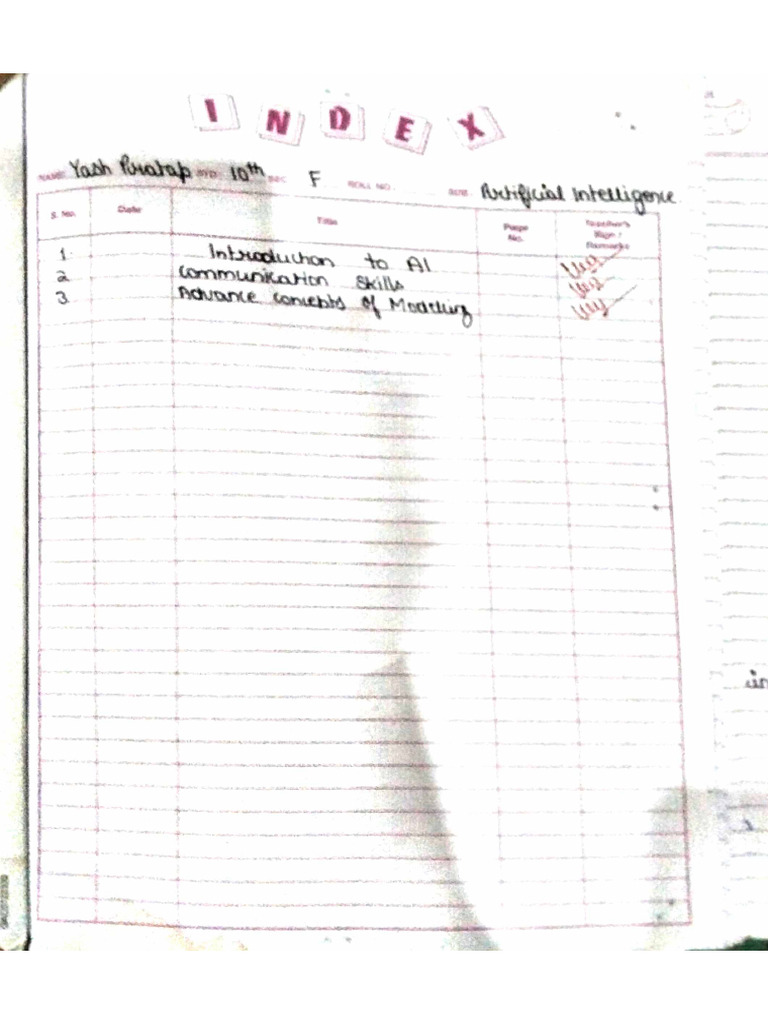 INDEX
NAME: Yash Pratap STD.: 10th SEC.: F ROLL NO.: SUB.: Artificial Intelligence
S. No. Date Title Page No. Teacher's Sign / Remarks
1. Introduction to AI
2 Communication Skills
3. Advance concepts of Modeling